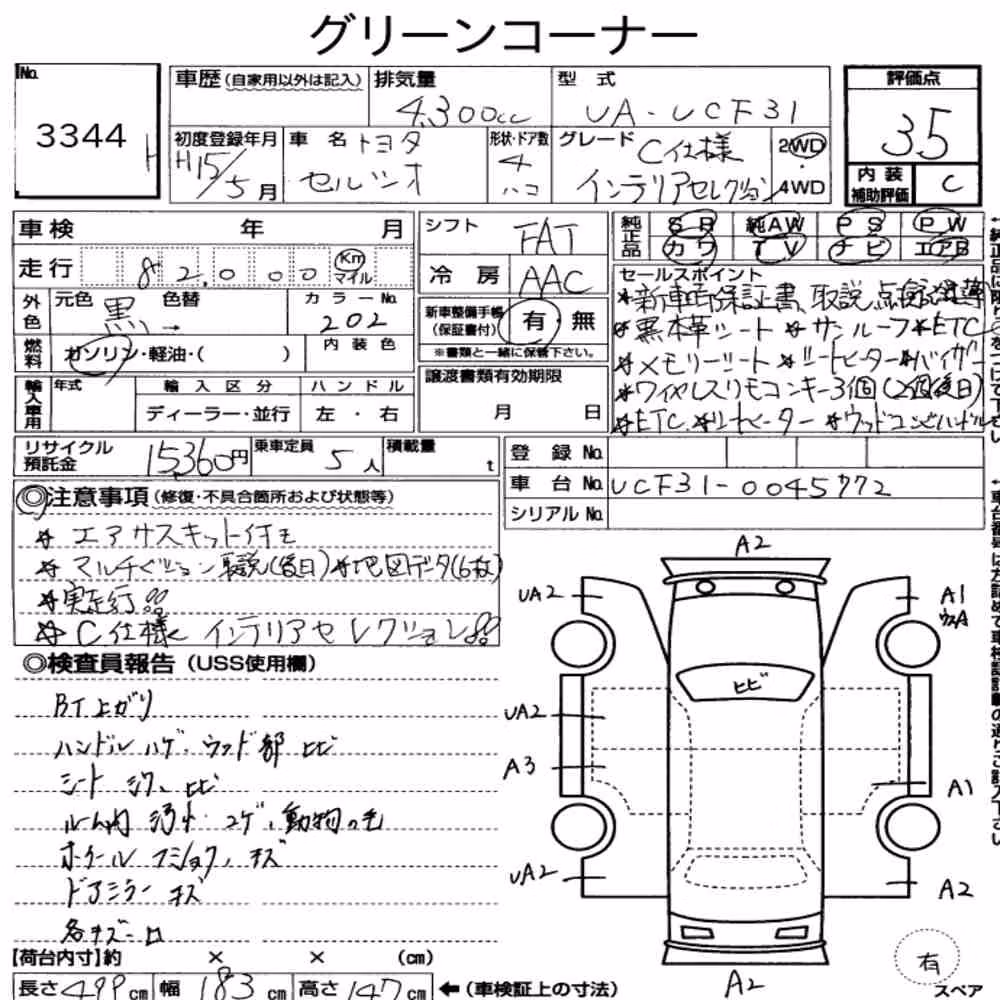 グリーンコーナー
No.
3344
車歴(自家用以外は記入)
排気量
4,300cc
型 式
UA-UCF31
評価点
3.5
初度登録年月
H15/5月
車 名 トヨタ
セルシオ
形状・ドア数
4
ハコ
グレード C仕様
インテリアセレクション
2WD
・
4WD
内 装
補助評価
C
車検 年 月
シフト
FAT
純正品
SR 純AW PS PW
カワ TV ナビ エアB
走行 82,000 Km
マイル
冷 房
AAC
セールスポイント
*新車時保証書、取説
*黒本革シート *サンルーフ*ETC
*メモリーシート *シートヒーター*バイザー
*ワイヤレスリモコンキー3個(2個後日)
*ETC *シートヒーター *ウッドコンビハンドル
外色
元色 色替
黒 →
カラーNo.
202
新車整備手帳
(保証書付)
有・無
※書類と一緒に保管下さい。
燃料
ガソリン・軽油・( )
内 装 色
輸入車用
年式
輸 入 区 分
ハ ン ド ル
ディーラー・並行
左 ・ 右
譲渡書類有効期限
月 日
リサイクル
預託金
15360円
乗車定員
5人
積載量
t
登 録 No.
車 台 No. UCF31-0045772
シリアル No.
◎注意事項(修復・不具合箇所および状態等)
* エアサスキット付き
* マルチナビゲーション取説(後日)*地図データ(6枚)
*実走行!!
* C仕様 インテリアセレクション!!
◎検査員報告(USS使用欄)
BT上ガリ
ハンドル ハゲ、ウッド部 ヒビ
シート シワ、ヒビ
ルーム内 汚れ・コゲ、動物の毛
ホイール フショク、キズ
ドアミラー キズ
各キズ一口
A2
UA2
A1
ウスA
ヒビ
UA2
A3
A1
UA2
A2
A2
有
スペア
【荷台内寸】約 × × (cm)
長さ499cm 幅183cm 高さ147cm ←(車検証上の寸法)